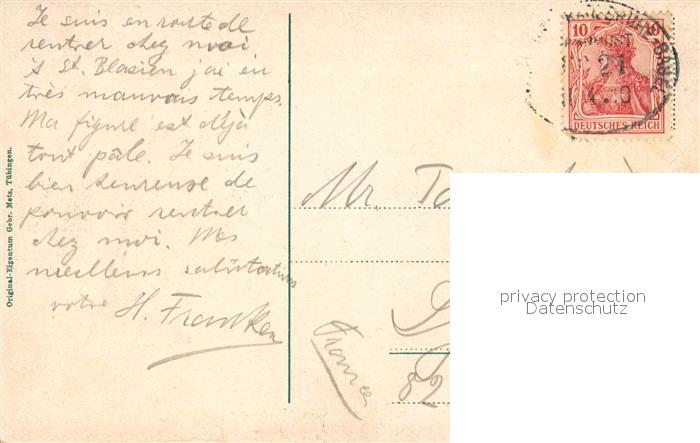 Je suis en route de
rentrer chez moi.
A St. Blasien j'ai eu
très mauvais temps.
Ma figure est déjà
tout pâle. Je suis
bien heureuse de
pouvoir rentrer
chez moi. Mes
meilleurs salutations
votre H. Franken
Original-Eigentum Gebr. Metz, Tübingen.
10 10
DEUTSCHES REICH
21
Mr.
France
82
privacy protection
Datenschutz